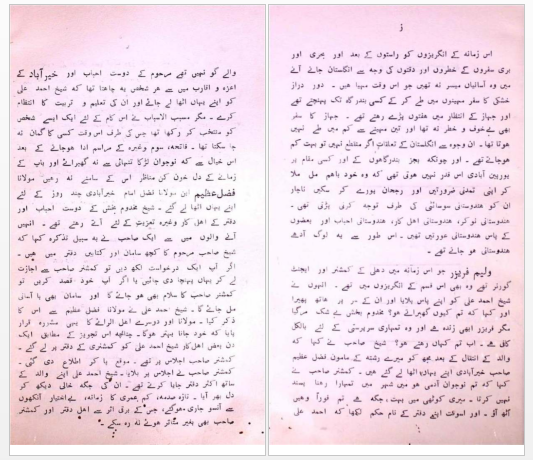 ز
اس زمانہ کے انگریزوں کو راستوں کے بعد اور بحری اور
بری سفروں کے خطروں اور دقتوں کی وجہ سے انگلستان جانے آنے
میں وہ آسانیاں میسر نہ تھیں جو اس وقت مہیا ہیں ۔ دور دراز
خشکی کا سفر مہینوں میں طے کر کے کسی بندرگاہ تک پہنچتے تھے
اور جہاز کے انتظار میں ہفتوں پڑے رہتے تھے ۔ جہاز کا سفر
بھی بے خوف و خطر نہ تھا اور تین مہینے سے کم میں طے نہیں
ہوتا تھا ۔ ان وجوہ سے انگلستان کے تعلقات اگر منقطع نہیں تو بہت کم
ہوجاتے تھے ۔ اور چونکہ بجز بندرگاہوں کے اور کسی مقام پر
یورپین آبادی اس قدر نہیں ہوتی تھی کہ وہ خود باہم مل ملا
کر اپنی تمدنی ضرورتیں اور رجحان پورے کر سکیں ناچار
ان کو ہندوستانی سوسائٹی کی طرف توجہ کرنی پڑتی تھی ۔
ہندوستانی نوکر، ہندوستانی اہل کار، ہندوستانی احباب اور بعضوں
کے پاس ہندوستانی عورتیں تھیں ۔ اس طور سے یہ لوگ آدھے
ہندوستانی ہو جاتے تھے ۔
ولیم فریزر جو اس زمانہ میں دھلی کے کمشنر اور ایجنٹ
گورنر تھے وہ بھی اس قسم کے انگریزوں میں تھے ۔ انہوں نے
شیخ احمد علی کو اپنے پاس بلایا اور ان کے سر پر ہاتھ پھیرا
اور کہا کہ تم کیوں گھبراتے ہو؟ مخدوم بخش بے شک مرگیا
مگر فریزر ابھی زندہ ہے اور وہ تمہاری سرپرستی کے لئے بالکل
کافی ہے ۔ اب تم کہاں رہتے ہو؟ شیخ صاحب نے کہا کہ
والد کے انتقال کے بعد مجھ کو میرے رشتہ کے ماموں فضل عظیم
صاحب خیرآبادی اپنے یہاں اٹھا لے گئے ہیں ۔ کمشنر صاحب نے
کہا کہ تم نوجوان آدمی ہو میں شہر میں تمہارا رہنا پسند
نہیں کرتا ۔ میری کوٹھی میں بہت جگہ ہے تم فوراً وہیں
اٹھ آؤ ۔ اور اسوقت اپنے دفتر کے نام حکم لکھا کہ احمد علی
والے کو نہیں تھے مرحوم کے دوست احباب اور خیرآباد کے
اعزہ و اقارب میں سے ہر شخص یہ چاہتا تھا کہ شیخ احمد علی
کو اپنے یہاں اٹھا لے جائے اور ان کی تعلیم و تربیت کا انتظام
کرے ۔ مگر مسبب الاسباب نے اس کام کے لئے ایک ایسے شخص
کو منتخب کر رکھا تھا جس کی طرف اس وقت کسی کا گمان نہ
جا سکتا تھا ۔ فاتحہ، سوم وغیرہ کے مراسم ادا ہوجانے کے بعد
اس خیال سے کہ نوجوان لڑکا تنہائی سے نہ گھبرائے اور باپ کے
زمانے کے دل خون کن مناظر اس کے سامنے نہ رہیں مولانا
فضل عظیم ابن مولانا فضل امام خیرآبادی چند روز کے لئے
اپنے یہاں اٹھا لے گئے ۔ شیخ مخدوم بخش کے دوست احباب اور
دفتر کے اہل کار وغیرہ تعزیت کے لئے آتے رہتے تھے ۔ انہیں
آنے والوں میں سے ایک صاحب نے بہ سبیل تذکرہ کہا کہ
شیخ صاحب مرحوم کا کچھ سامان اور کتابیں دفتر میں ہیں ۔
اگر آپ ایک درخواست لکھ دیں تو کمشنر صاحب سے اجازت
لے کر یہاں پہنچا دی جائیں یا اگر آپ خود قصد کریں تو
کمشنر صاحب کا سلام بھی ہو جائے گا اور سامان بھی با آسانی
مل جائے گا ۔ شیخ احمد علی نے مولانا فضل عظیم سے اس کا
ذکر کیا ۔ مولانا اور دوسرے اہل الرائے کا یہی مشورہ قرار
پایا کہ خود جانا بہتر ہوگا ۔ چنانچہ اس تجویز کے مطابق ایک
دن بعض اہل کار شیخ احمد علی کو کمشنری کے دفتر پر لے گئے ۔
کمشنر صاحب اجلاس پر تھے ۔ موقع پا کر اطلاع دی گئی ۔
کمشنر صاحب نے اجلاس پر بلایا ۔ شیخ احمد علی اپنے والد کے
ساتھ اکثر دفتر جایا کرتے تھے ۔ ان کی جگہ خالی دیکھ کر
دل بھر آیا ۔ تازہ صدمہ، کم عمری کا زمانہ، بے اختیار آنکھوں
سے آنسو جاری ہوگئے، جس کے برقی اثر سے اہل دفتر اور کمشنر
صاحب بھی بغیر متاثر ہوئے نہ رہ سکے ۔